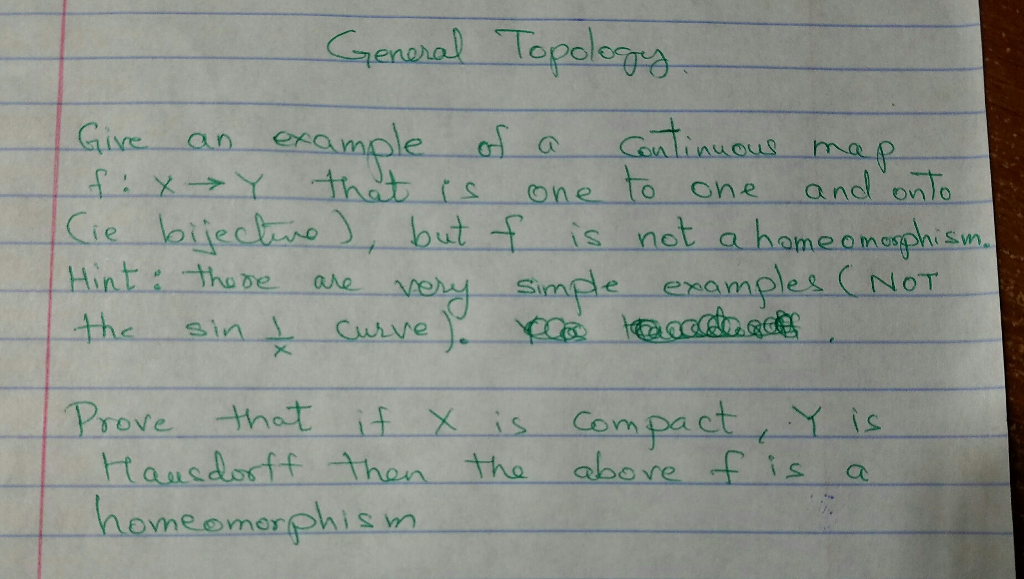 General Topology.
Give an example of a continuous map
f: X → Y that is one to one and onto
(ie bijective), but f is not a homeomorphism.
Hint: there are very simple examples (NOT
the sin 1/x curve).
Prove that if X is compact, Y is
Hausdorff then the above f is a
homeomorphism